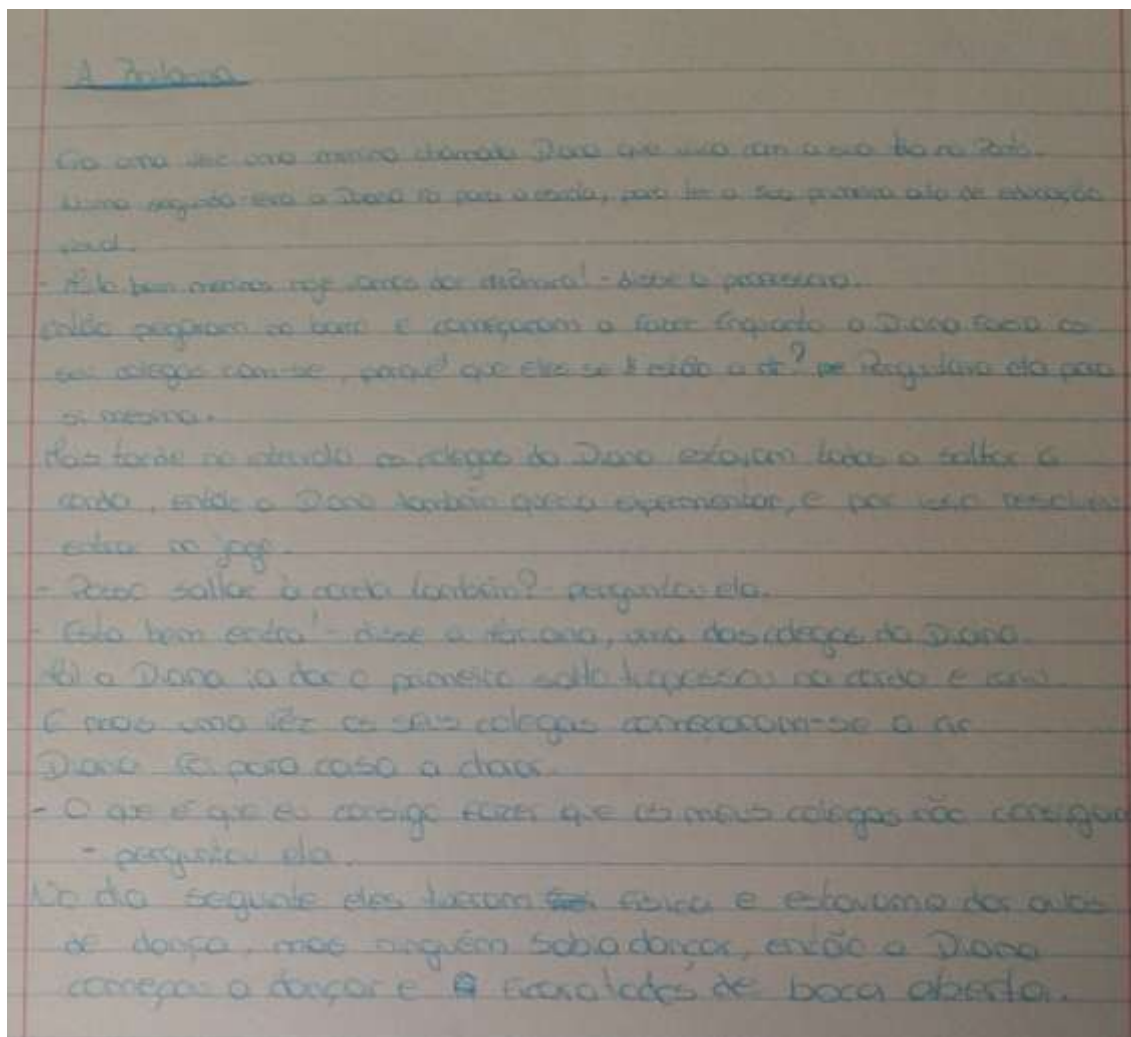 A Bailarina
Era uma vez uma menina chamada Diana que vivia com a sua tia no Porto.
Numa segunda-feira a Diana foi para a escola, para ter a sua primeira aula de educação
visual.
- Muito bem meninos hoje vamos dar cerâmica! - disse a professora.
então pegaram no barro e começaram a fazer Enquanto a Diana fazia os
seus colegas riam-se, porquê que eles se estão a rir? Perguntava ela para
si mesma.
Mais tarde no intervalo os colegas da Diana estavam todos a saltar à
corda, então a Diana também queria experimentar, e por isso resolveu
entrar no jogo.
- Posso saltar à corda também? - perguntou ela.
- Esta bem entra! - disse a Mariana, uma das colegas da Diana.
a Diana ia dar o primeiro salto tropessou na corda e caiu.
E mais uma vêz os seus colegas começaram-se a rir
Diana foi para casa a chorar.
- O que é que eu consigo fazer que os meus colegas não consigam
- perguntou ela.
No dia seguinte eles tiveram física e estavam a dar aulas
de dança, mas ninguém sabia dançar, então a Diana
começou a dançar e todos de boca aberta.